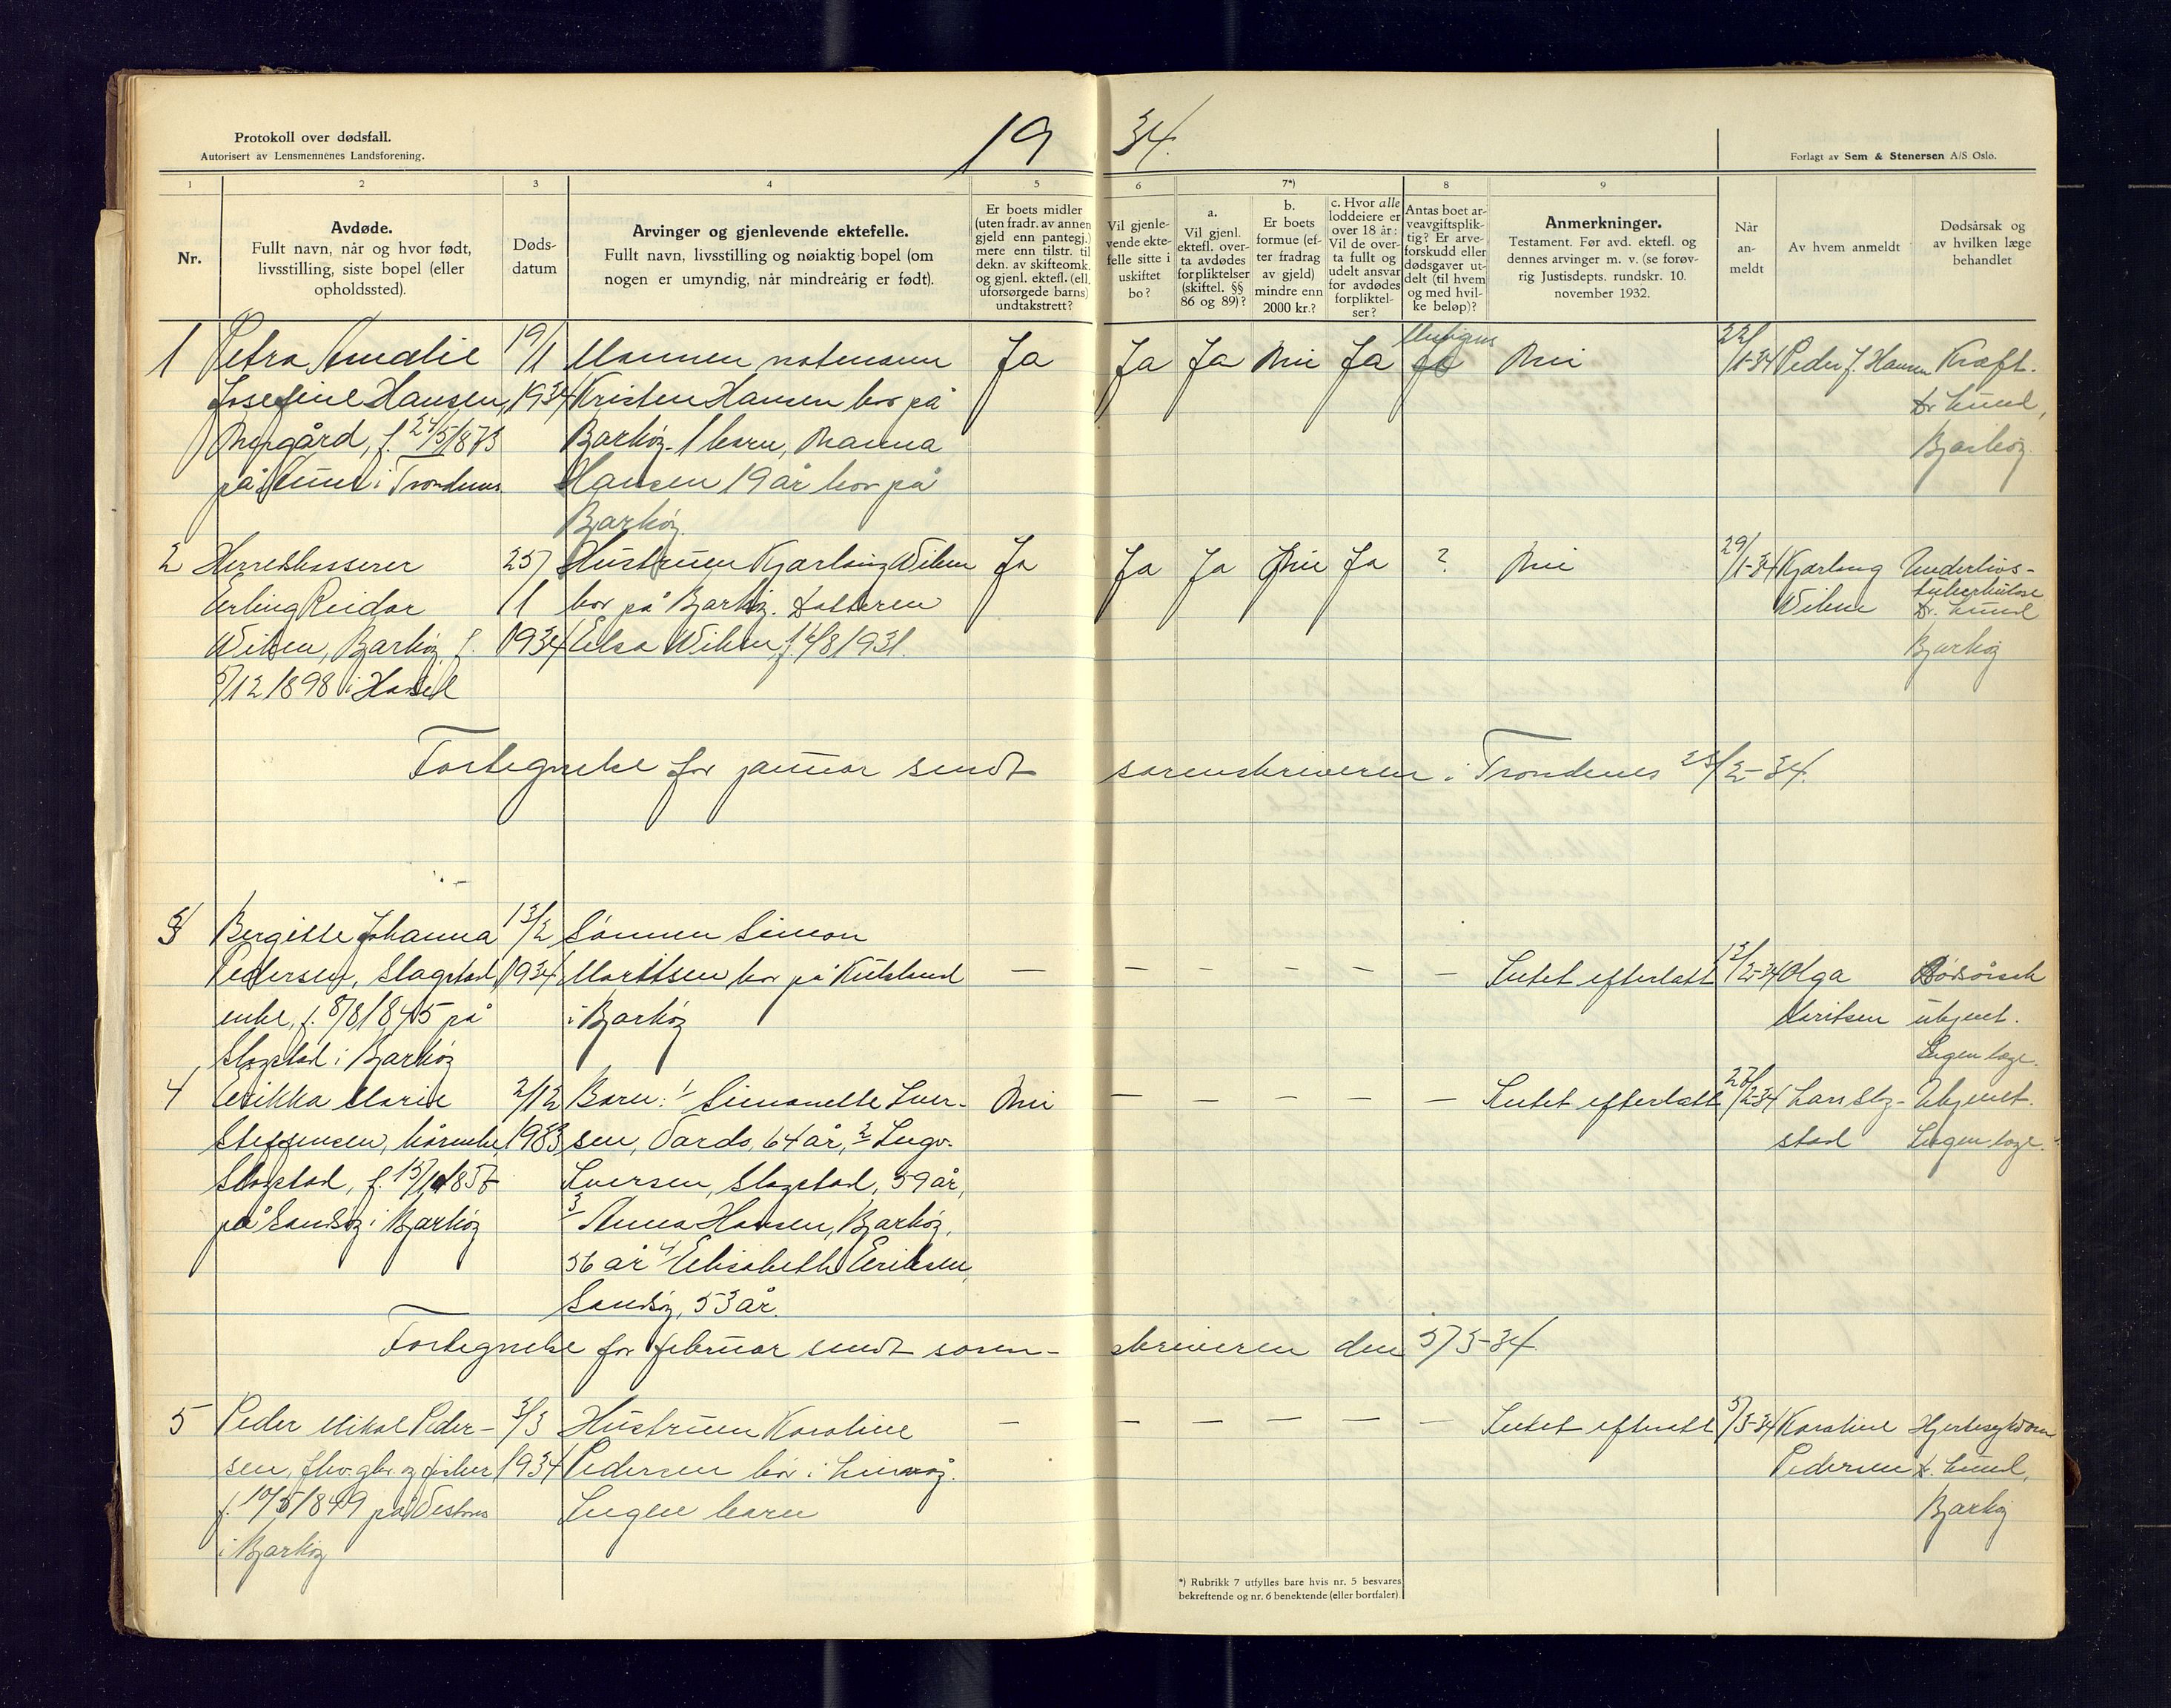 19 34.
Protokoll over dødsfall.
Autorisert av Lensmennenes Landsforening.
Forlagt av Sem & Stenersen A/S Oslo.
1
2
3
4
5
6
7*)
8
9
Nr.
Avdøde.
Fullt navn, når og hvor født,
livsstilling, siste bopel (eller
opholdssted).
Døds-
datum
Arvinger og gjenlevende ektefelle.
Fullt navn, livsstilling og nøiaktig bopel (om
nogen er umyndig, når mindreårig er født).
Er boets midler
(uten fradr. av annen
gjeld enn pantegj.)
mere enn tilstr. til
dekn. av skifteomk.
og gjenl. ektef. (ell.
uforsørgede barns)
undtakstrett?
Vil gjenle-
vende ekte-
felle sitte i
uskiftet
bo?
a.
Vil gjenl.
ektefl. over-
ta avdødes
forpliktelser
(skiftel. §§
86 og 89)?
b.
Er boets
formue (ef-
ter fradrag
av gjeld)
mindre enn
2000 kr.?
c. Hvor alle
loddeiere er
over 18 år:
Vil de over-
ta fullt og
udelt ansvar
for avdødes
forpliktel-
ser?
Antas boet ar-
veavgiftsplik-
tig? Er arve-
forskudd eller
dødsgaver ut-
delt (til hvem
og med hvil-
ke beløp)?
Anmerkninger.
Testament. Før avd. ektefl. og
dennes arvinger m. v. (se forøv-
rig Justisdepts. rundskr. 10.
november 1932.
Når
an-
meldt
Av hvem anmeldt
Dødsårsak og
av hvilken læge
behandlet
1 Petra Amalie
Josefine Hansen,
f. 24/5 1873
på i Trondenes
19/1
1934
Mannen notemann
Kristen Hansen bor på
Bjarkøy. 1 barn, Nanna
Hansen 19 år bor på
Bjarkøy.
Ja Ja Ja Nei Ja Muligens Nei
22/1-34 Peder J. Hansen Kræft.
Dr. Lund,
Bjarkøy.
2 Herredskasserer
Erling Reidar
Wiben, Bjarkøy, f.
5/12 1898 i Hadsel
25/
1
1934
Hustruen Kjærlaug Wiben
bor på Bjarkøy. Datteren
Elsa Wiben f. 4/8 1931.
Ja Ja Ja Nei Ja ? Nei
29/1-34 Kjærlaug
Wiben
Underlivs-
tuberkulose
Dr. Lund
Bjarkøy
Fortegnelse for januar sendt sorenskriveren i Trondenes 23/2-34.
3 Bergitte Johanna
Pedersen, Slagstad,
enke, f. 8/8 1845 på
Slagstad i Bjarkøy
13/2
1934
Sønnen Simon
bor på
i Bjarkøy
— — — — — — Intet efterlatt
13/2-34 Olga
Maritsen
Dødsårsak
ukjent.
Ingen læge.
4 Erikka Marie
Steffensen, kårenke,
Slagstad, f. 15/10 1856
på Sandsøy i Bjarkøy
2/12
1933
Barn: 1/ Simonette Iver-
sen, Vardø, 64 år, 2/ Ingv.
Iversen, Slagstad, 59 år,
3/ Anna Hansen, Bjarkøy,
56 år 4/ Elisabeth Eriksen,
Sandsøy, 53 år.
Nei — — — — — Intet efterlatt
27/2-34 Lars Slag-
stad
Ukjent.
Ingen læge.
Fortegnelse for februar sendt soren- skriveren den 5/3-34.
5 Peder Mikal Peder-
sen, fhv. gbr. og fisker
f. 10/5 1849 på Vestnes
i Bjarkøy
3/3
1934
Hustruen Karoline
Pedersen bor i
Ingen barn
— — — — — — Intet efterlatt
5/3-34 Karoline
Pedersen
Hjertesykdom
Dr. Lund,
Bjarkøy
*) Rubrikk 7 utfylles bare hvis nr. 5 besvares
bekreftende og nr. 6 benektende (eller bortfaler).